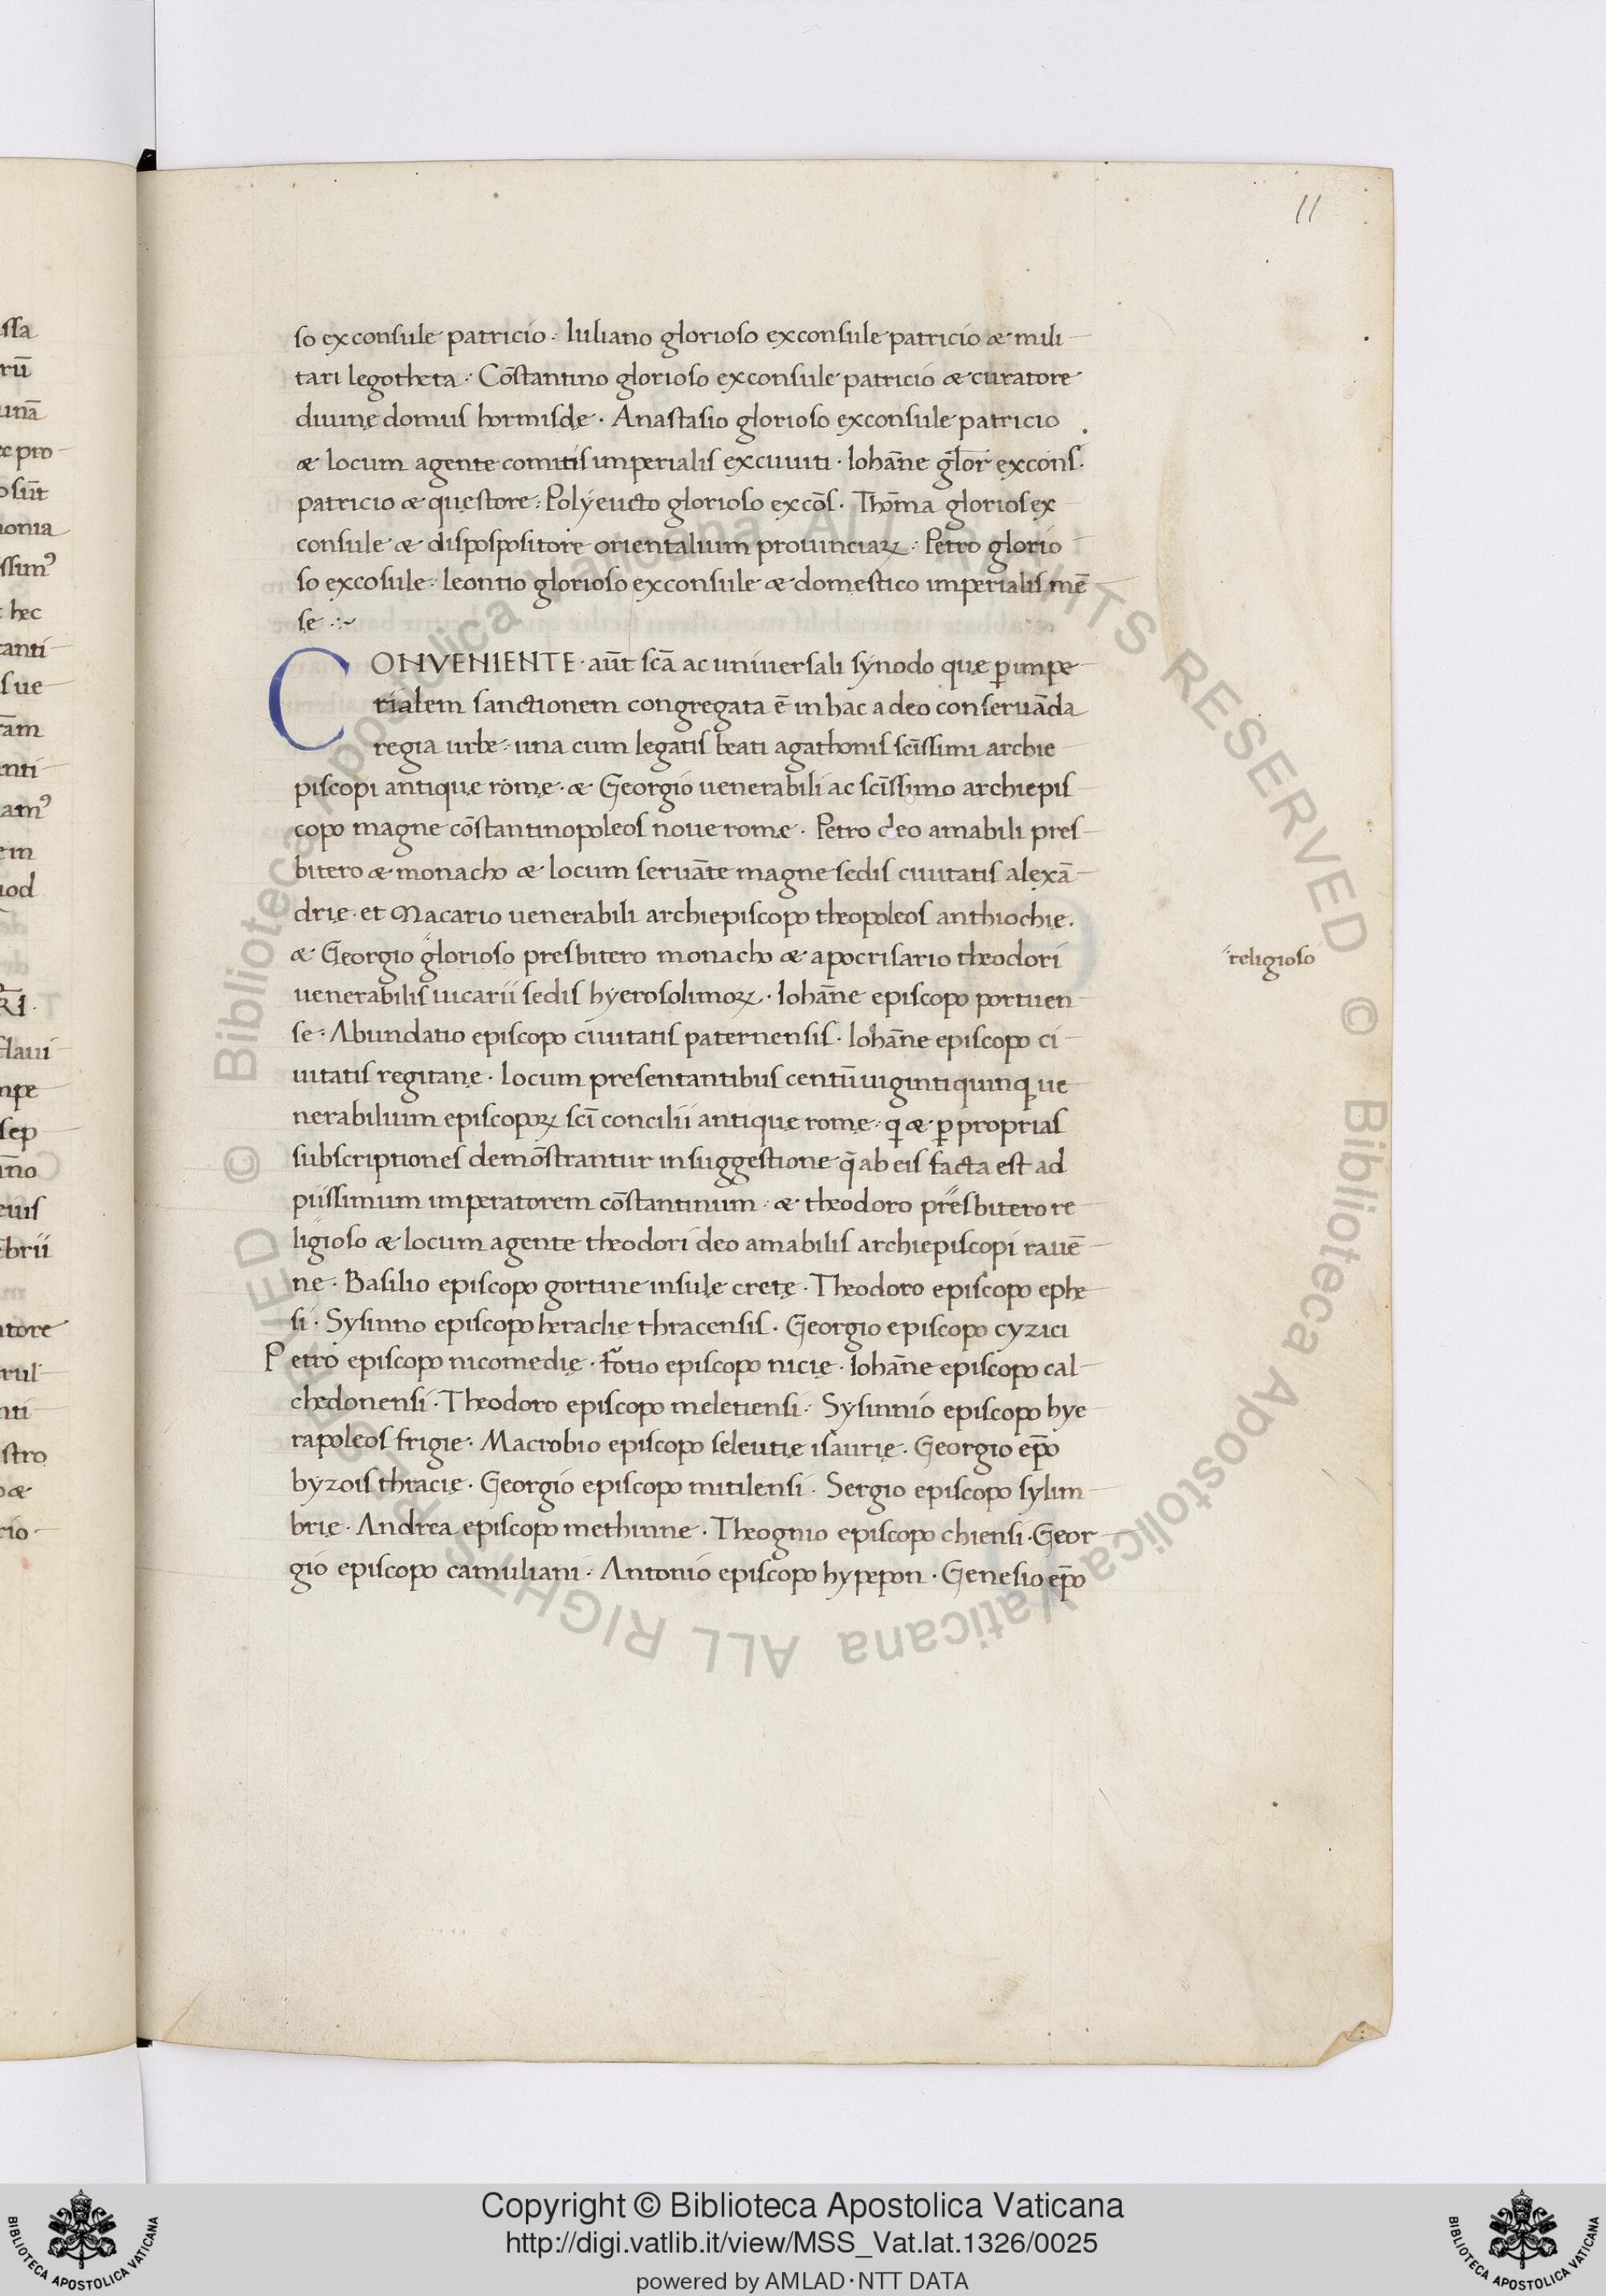 11
so exconsule patricio · Iuliano glorioso exconsule patricio & mili
tari legotheta · Cōstantino glorioso exconsule patricio & curatore
diuinę domus hormisdę · Anastasio glorioso exconsule patricio
& locum agente comitis imperialis excuuiti · Iohāne glor̄ excons̄·
patricio & quęstore · Polyeucto glorioso excōs · Thōma glorios ex
consule & dispospositore orientalium prouinciaꝝ · Petro glorio
so excosule · leontio glorioso exconsule & domestico imperialis mē
sę
CONVENIENTE · aūt scā ac uniuersali synodo que ꝑ impe
rialem sanctionem congregata ē in hac a deo conseruāda
regia urbe · una cum legatis beati agathonis scīssimi archie
piscopi antique romę · & Georgio uenerabili ac scīssimo archiepis
copo magne cōstantinopoleos noue rome · Petro deo amabili pres
bitero & monacho & locum seruāte magne sedis ciuitatis alexā
drię · et Macario uenerabili archiepiscopo theopoleos anthiochię ·
& Georgio glorioso presbitero monacho & apocrisario theodori
religioso
uenerabilis uicarii sedis hyerosolimoꝝ · Iohāne episcopo portuen
se · Abundatio episcopo ciuitatis paternensis · Iohāne episcopo ci
uitatis regitane · locum presentantibus centū uiginti quinqꝫ ue
nerabilium episcopoꝝ scī concilii antiquę romę · q & ꝑ proprias
subscriptiones demōstrantur in suggestione q̄ ab eis facta est ad
piissimum imperatorem cōstantinum · & theodoro presbitero re
ligioso & locum agente theodori deo amabilis archiepiscopi rauē
ne · Basilio episcopo gortine insulę cretę · Theodoro episcopo ephe
si · Sysinno episcopo heraclię thracensis · Georgio episcopo cyzici
Petro episcopo nicomedię · Fotio episcopo nicię · Iohāne episcopo cal
chedonensi · Theodoro episcopo meletiensi · Sysinnio episcopo hye
rapoleos frigie · Macrobio episcopo seleutię isaurię · Georgio ep̄o
byzois thracię · Georgio episcopo mitilensi · Sergio episcopo sylim
brię · Andrea episcopo methinne · Theognio episcopo chiensi · Geor
gio episcopo camuliani · Antonio episcopo hypepon · Genesio ep̄o
Copyright © Biblioteca Apostolica Vaticana
http://digi.vatlib.it/view/MSS_Vat.lat.1326/0025
powered by AMLAD·NTT DATA